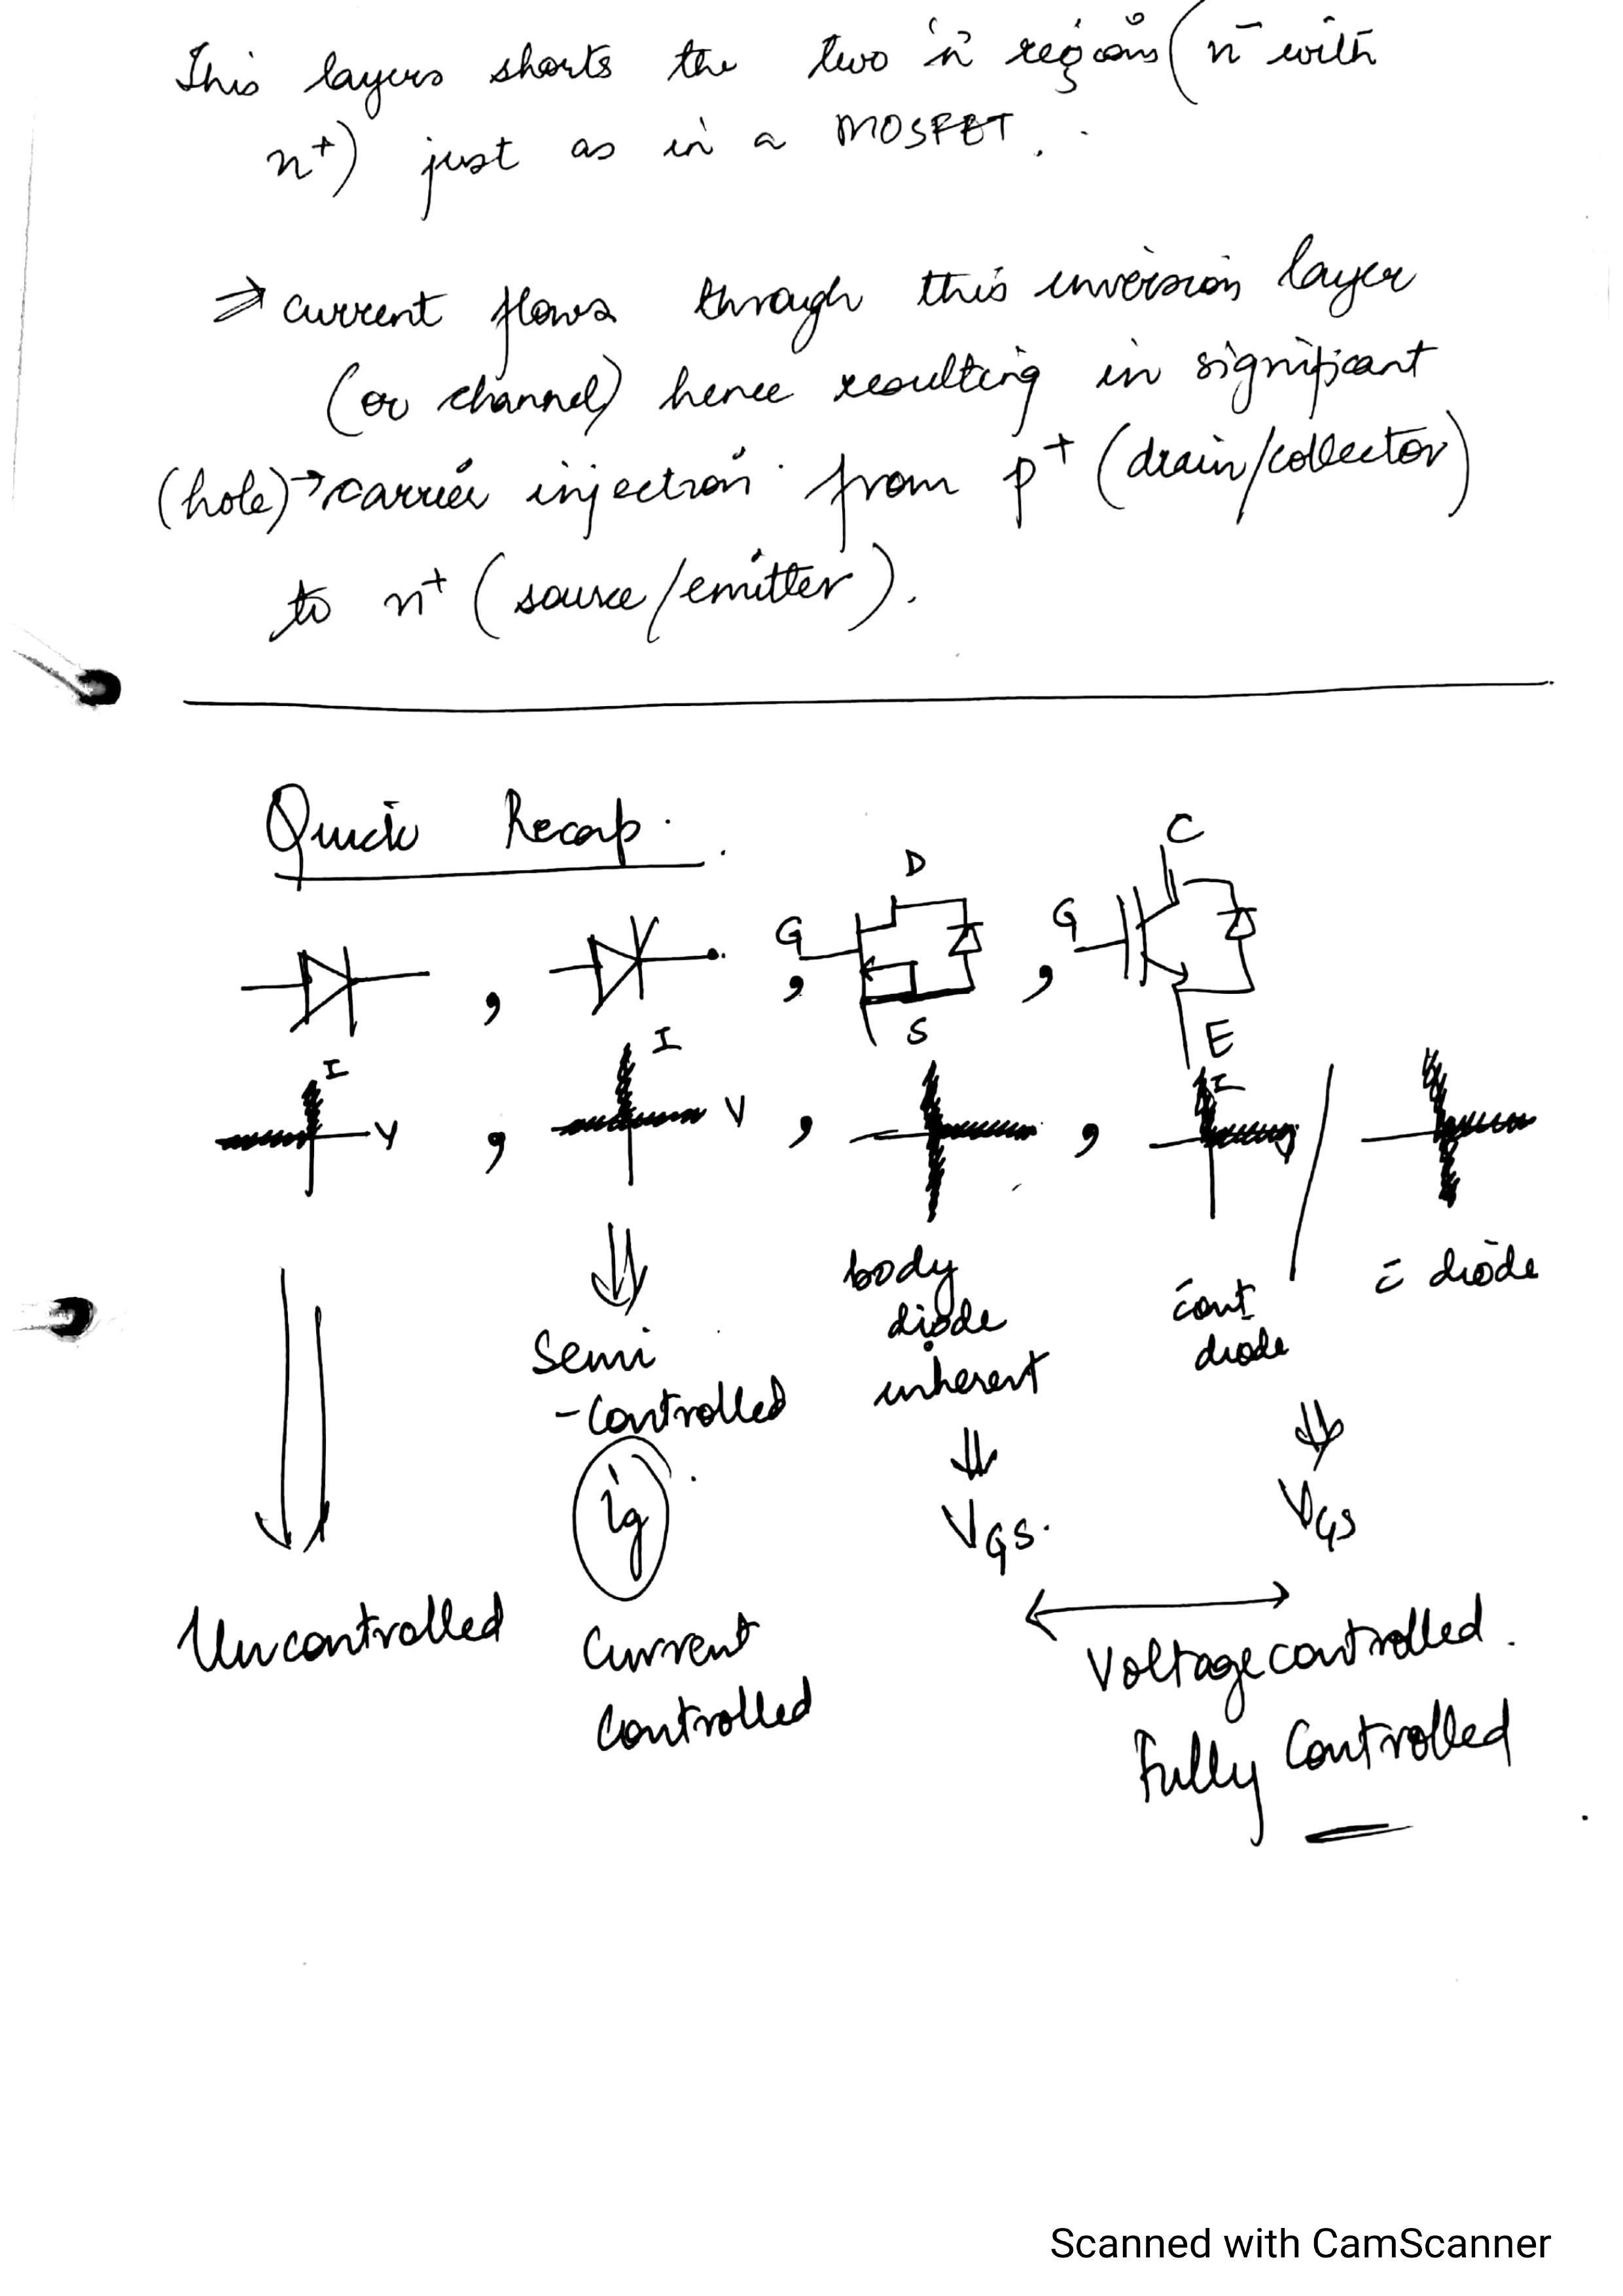 This layers shorts the two 'n' regions (n⁻ with
n⁺) just as in a MOSFET.
⇒ current flows through this inversion layer
(or channel) hence resulting in significant
(hole)→ carrier injection from p⁺ (drain/collector)
to n⁺ (source/emitter).
Quick Recap.
D
C
G
G
, , ,
S
E
I
I
I
V
V
, , ,
body
diode
inherent
c̄out
diode
c̄ diode
Semi
-controlled
ig
VGS.
VGS
Uncontrolled
Current
controlled
Voltage controlled.
Fully Controlled
Scanned with CamScanner